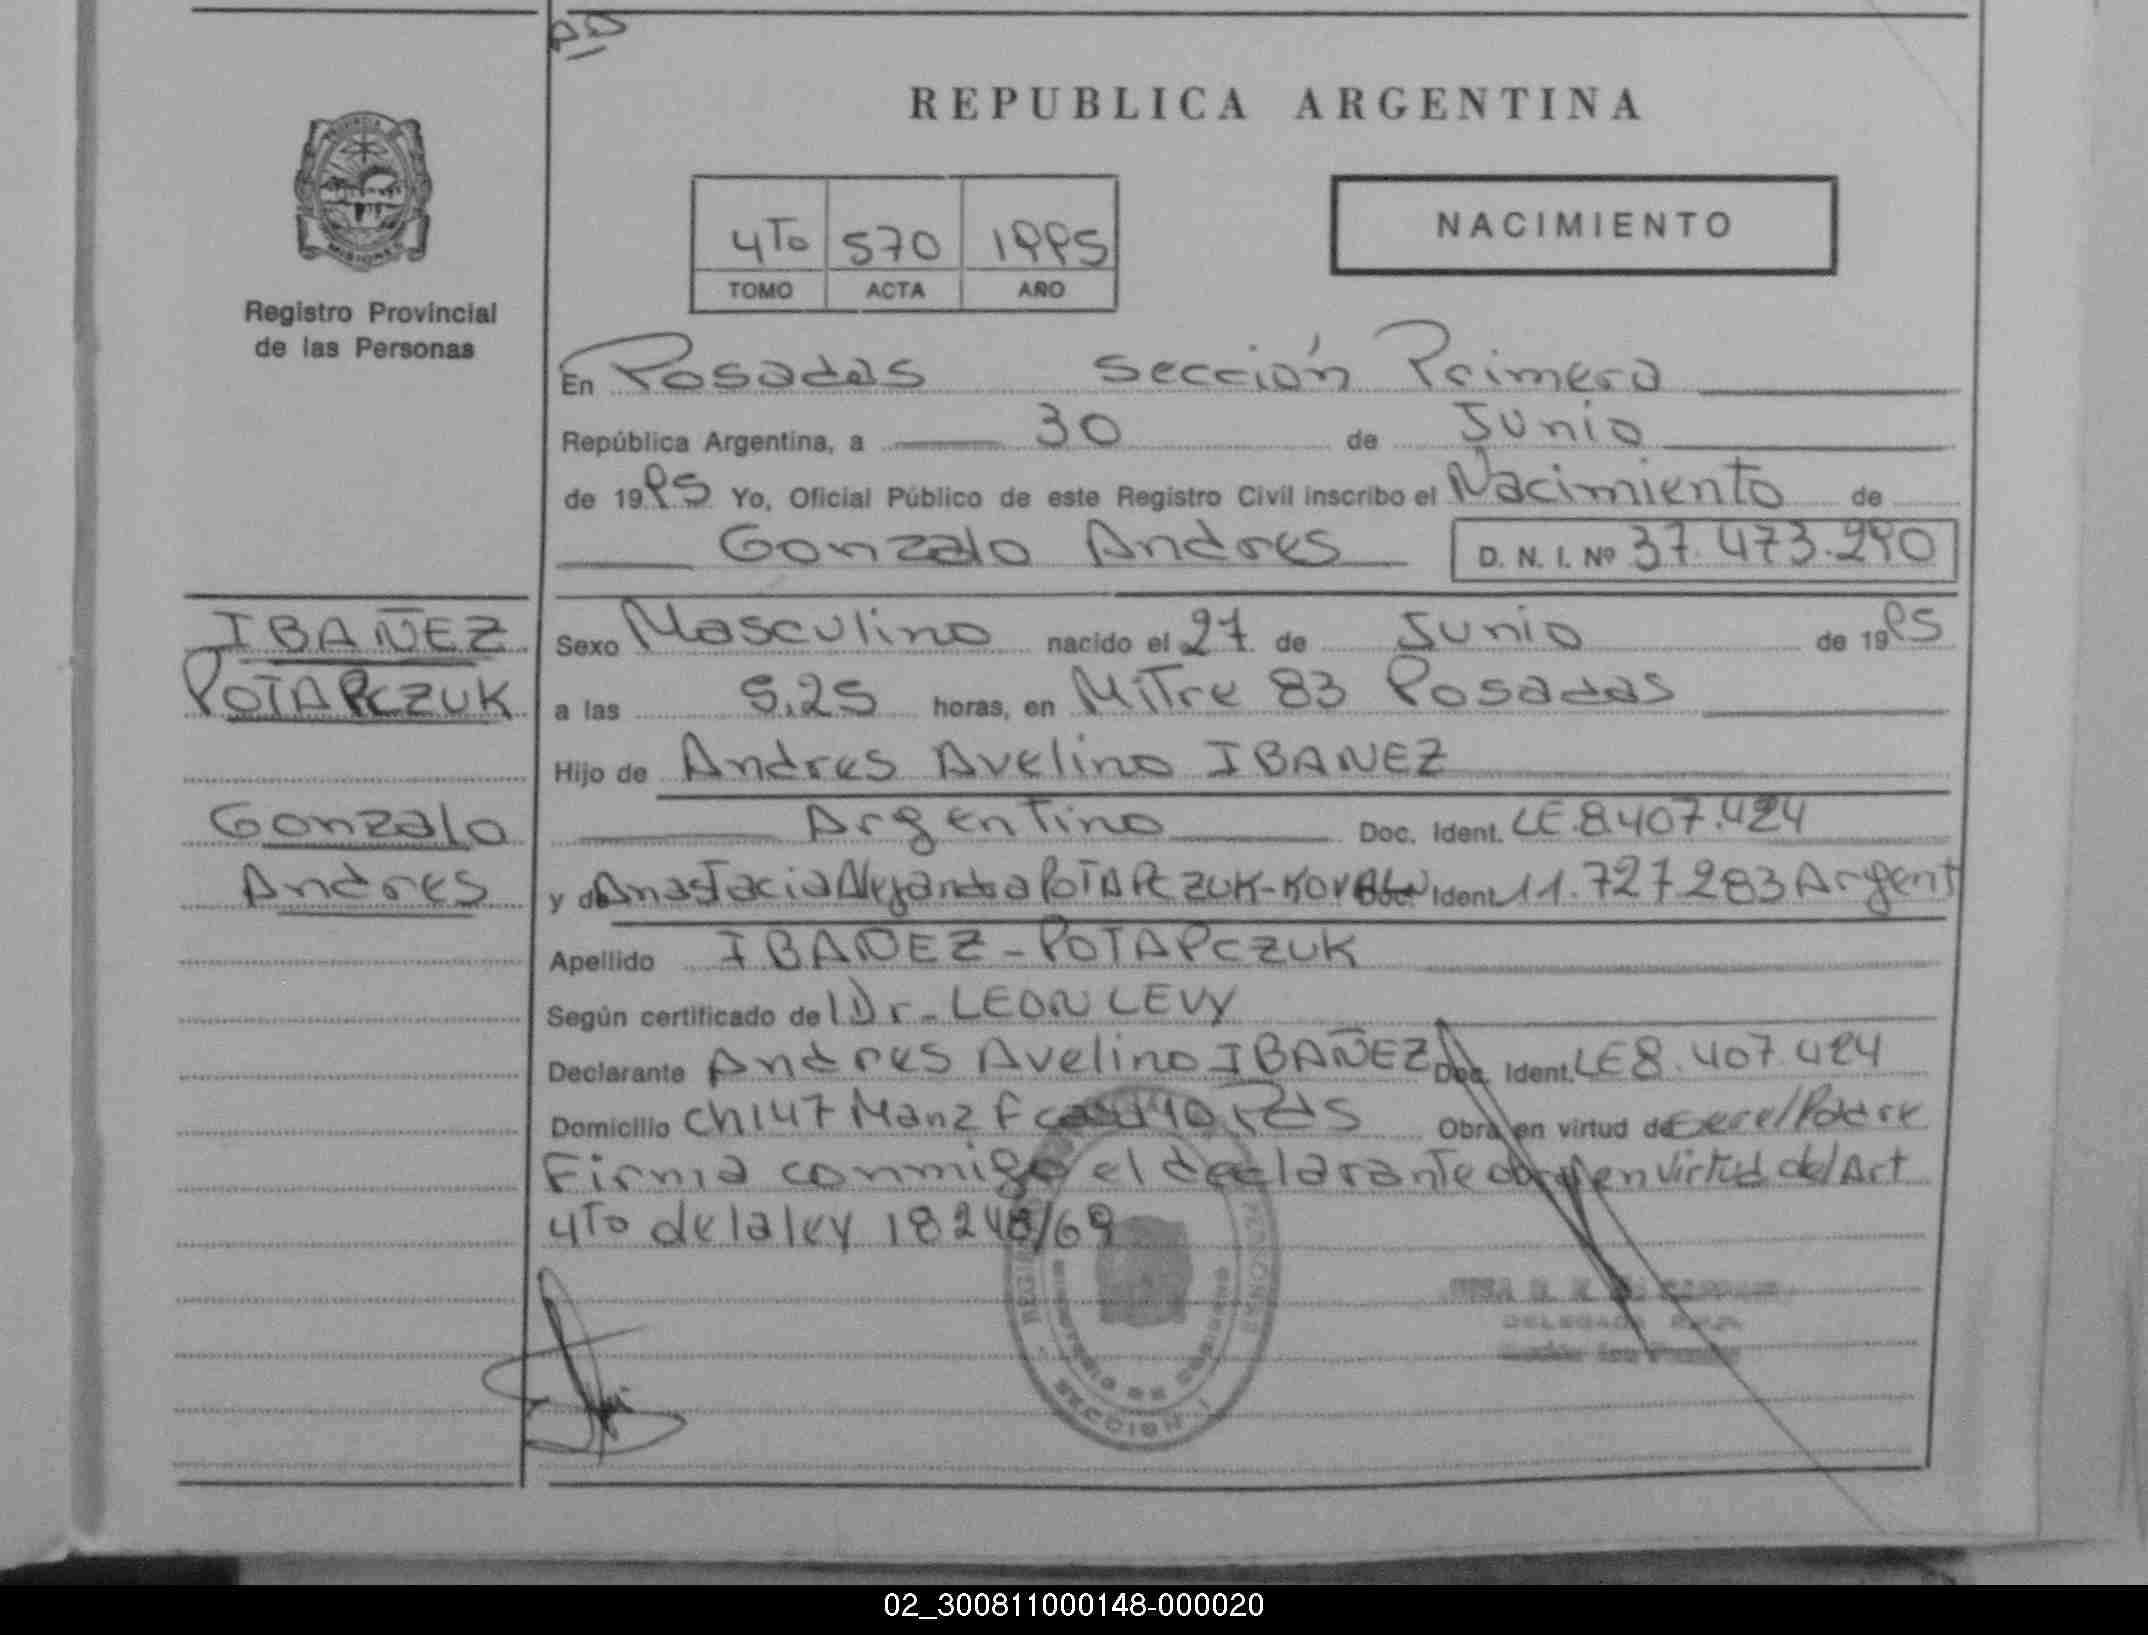 REPUBLICA ARGENTINA
PROVINCIA DE
MISIONES
Registro Provincial
de las Personas
NACIMIENTO
4To 570 1995
TOMO ACTA AÑO
En Posadas Sección Primera
República Argentina, a 30 de Junio
de 1995 Yo, Oficial Público de este Registro Civil inscribo el Nacimiento de
Gonzalo Andres D. N. I. Nº 37.473.290
IBAÑEZ
POTAPCZUK
Gonzalo
Andres
Sexo Masculino nacido el 27 de Junio de 1995
a las 5,25 horas, en Mitre 83 Posadas
Hijo de Andres Avelino IBANEZ
Argentino Doc. Ident. LE.8.407.424
y de Anastacia Alejandra POTAPCZUK- Doc. Ident. 11.727.283 Argent
Apellido IBAÑEZ - POTAPCZUK
Según certificado del Dr. LEON LEVY
Declarante Andres Avelino IBAÑEZ Doc. Ident. LE8.407.424
Domicilio Ch147 Manz F casa 40 Pds Obra en virtud de ser el Padre
Firma conmigo el declarante en virtud del Art
4To de la ley 18248/69
SECCION I
DELEGADA R.P.P.
02_300811000148-000020